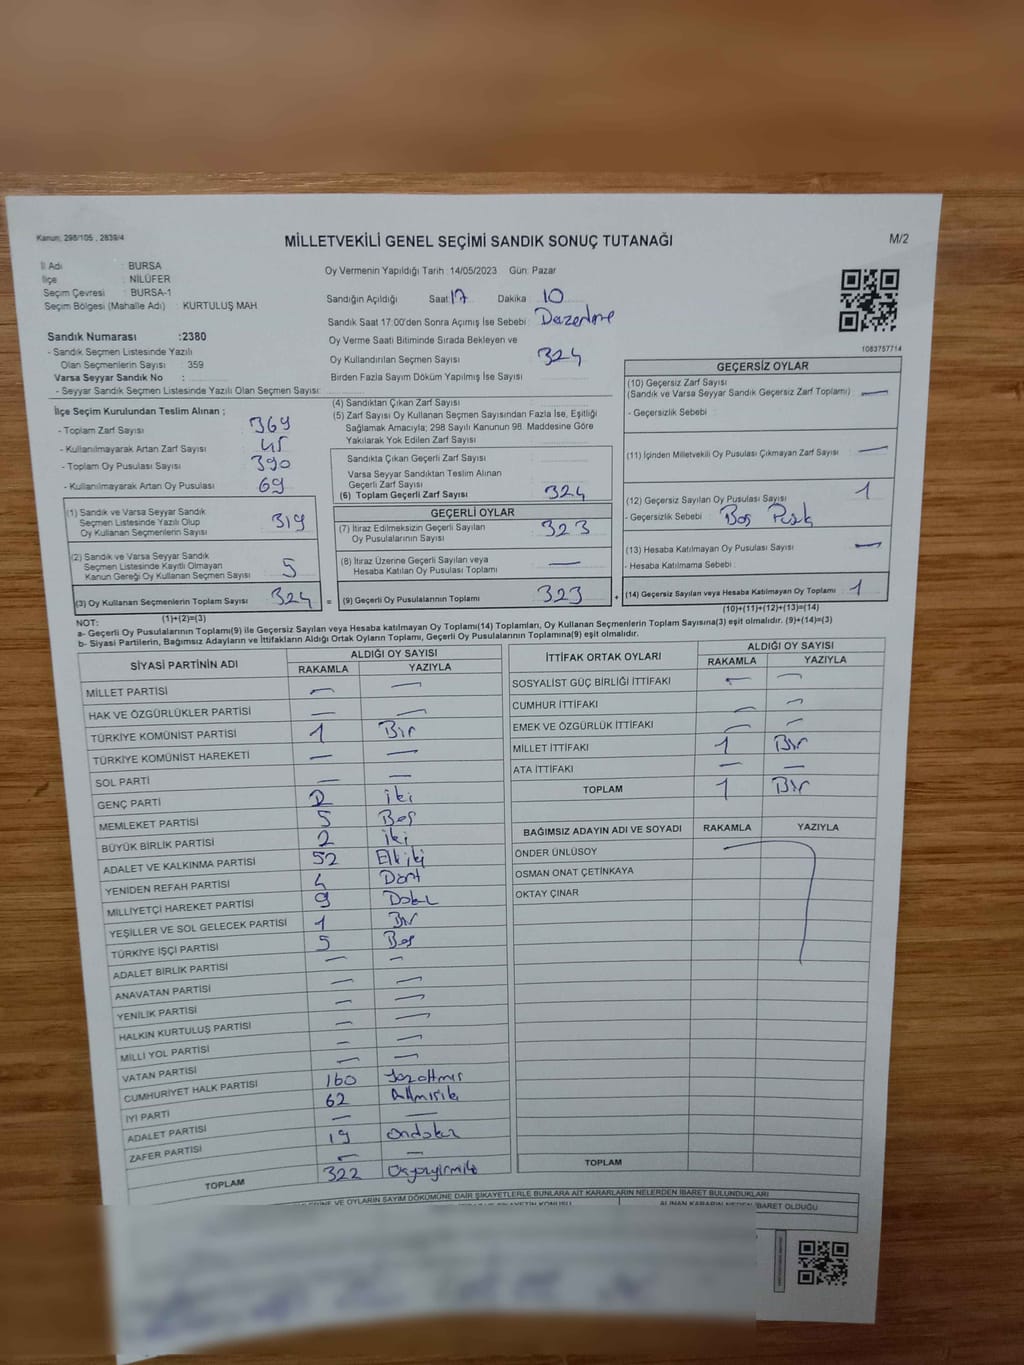 Kanun: 298/105 , 2839/4
MİLLETVEKİLİ GENEL SEÇİMİ SANDIK SONUÇ TUTANAĞI
M/2
İl Adı : BURSA
İlçe : NİLÜFER
Seçim Çevresi : BURSA-1
Seçim Bölgesi (Mahalle Adı) : KURTULUŞ MAH
Sandık Numarası :2380
- Sandık Seçmen Listesinde Yazılı
Olan Seçmenlerin Sayısı : 359
Varsa Seyyar Sandık No :
- Seyyar Sandık Seçmen Listesinde Yazılı Olan Seçmen Sayısı:
Oy Vermenin Yapıldığı Tarih :14/05/2023 Gün: Pazar
Sandığın Açıldığı Saat 17 Dakika 10
Sandık Saat 17:00'den Sonra Açımış İse Sebebi :
Oy Verme Saati Bitiminde Sırada Bekleyen ve
Oy Kullandırılan Seçmen Sayısı 324
Birden Fazla Sayım Döküm Yapılmış İse Sayısı
1083757714
İlçe Seçim Kurulundan Teslim Alınan ;
- Toplam Zarf Sayısı 369
- Kullanılmayarak Artan Zarf Sayısı 45
- Toplam Oy Pusulası Sayısı 390
- Kullanılmayarak Artan Oy Pusulası 69
(1) Sandık ve Varsa Seyyar Sandık
Seçmen Listesinde Yazılı Olup
Oy Kullanan Seçmenlerin Sayısı 319
(2) Sandık ve Varsa Seyyar Sandık
Seçmen Listesinde Kayıtlı Olmayan
Kanun Gereği Oy Kullanan Seçmen Sayısı 5
(3) Oy Kullanan Seçmenlerin Toplam Sayısı 324 =
(1)+(2)=(3)
(4) Sandıktan Çıkan Zarf Sayısı
(5) Zarf Sayısı Oy Kullanan Seçmen Sayısından Fazla İse, Eşitliği
Sağlamak Amacıyla; 298 Sayılı Kanunun 98. Maddesine Göre
Yakılarak Yok Edilen Zarf Sayısı
Sandıkta Çıkan Geçerli Zarf Sayısı
Varsa Seyyar Sandıktan Teslim Alınan
Geçerli Zarf Sayısı
(6) Toplam Geçerli Zarf Sayısı 324
GEÇERLİ OYLAR
(7) İtiraz Edilmeksizin Geçerli Sayılan
Oy Pusulasının Sayısı 323
(8) İtiraz Üzerine Geçerli Sayılan veya
Hesaba Katılan Oy Pusulası Toplamı —
(9) Geçerli Oy Pusulalarının Toplamı 323 +
GEÇERSİZ OYLAR
(10) Geçersiz Zarf Sayısı
(Sandık ve Varsa Seyyar Sandık Geçersiz Zarf Toplamı) —
- Geçersizlik Sebebi :
(11) İçinden Milletvekili Oy Pusulası Çıkmayan Zarf Sayısı —
(12) Geçersiz Sayılan Oy Pusulası Sayısı 1
- Geçersizlik Sebebi : Boş
(13) Hesaba Katılmayan Oy Pusulası Sayısı —
- Hesaba Katılmama Sebebi :
(14) Geçersiz Sayılan veya Hesaba Katılmayan Oy Toplamı 1
(10)+(11)+(12)+(13)=(14)
NOT:
a- Geçerli Oy Pusulalarının Toplamı(9) ile Geçersiz Sayılan veya Hesaba Katılmayan Oy Toplamı(14) Toplamları, Oy Kullanan Seçmenlerin Toplam Sayısına(3) eşit olmalıdır. (9)+(14)=(3)
b- Siyasi Partilerin, Bağımsız Adayların ve İttifakların Aldığı Ortak Oyların Toplamı, Geçerli Oy Pusulalarının Toplamına(9) eşit olmalıdır.
SİYASİ PARTİNİN ADI ALDIĞI OY SAYISI
RAKAMLA YAZIYLA
MİLLET PARTİSİ — —
HAK VE ÖZGÜRLÜKLER PARTİSİ — —
TÜRKİYE KOMÜNİST PARTİSİ 1 Bir
TÜRKİYE KOMÜNİST HAREKETİ — —
SOL PARTİ — —
GENÇ PARTİ 2 iki
MEMLEKET PARTİSİ 5 Beş
BÜYÜK BİRLİK PARTİSİ 2 iki
ADALET VE KALKINMA PARTİSİ 52 Elliiki
YENİDEN REFAH PARTİSİ 4 Dört
MİLLİYETÇİ HAREKET PARTİSİ 9 Dokuz
YEŞİLLER VE SOL GELECEK PARTİSİ 1 Bir
TÜRKİYE İŞÇİ PARTİSİ 5 Beş
ADALET BİRLİK PARTİSİ — —
ANAVATAN PARTİSİ — —
YENİLİK PARTİSİ — —
HALKIN KURTULUŞ PARTİSİ — —
MİLLİ YOL PARTİSİ — —
VATAN PARTİSİ — —
CUMHURİYET HALK PARTİSİ 160 Yüzaltmış
İYİ PARTİ 62 Altmışiki
ADALET PARTİSİ — —
ZAFER PARTİSİ 19 Ondokuz
— —
TOPLAM 322 Üçyüzyirmiiki
İTTİFAK ORTAK OYLARI ALDIĞI OY SAYISI
RAKAMLA YAZIYLA
SOSYALİST GÜÇ BİRLİĞİ İTTİFAKI — —
CUMHUR İTTİFAKI — —
EMEK VE ÖZGÜRLÜK İTTİFAKI — —
MİLLET İTTİFAKI 1 Bir
ATA İTTİFAKI — —
TOPLAM 1 Bir
BAĞIMSIZ ADAYIN ADI VE SOYADI RAKAMLA YAZIYLA
ÖNDER ÜNLÜSOY
OSMAN ONAT ÇETİNKAYA
OKTAY ÇINAR
TOPLAM
VE OYLARIN SAYIM DÖKÜMÜNE DAİR ŞİKAYETLERLE BUNLARA AİT KARARLARIN NELERDEN İBARET BULUNDUKLARI
ALINAN KARARIN NEDEN İBARET OLDUĞU